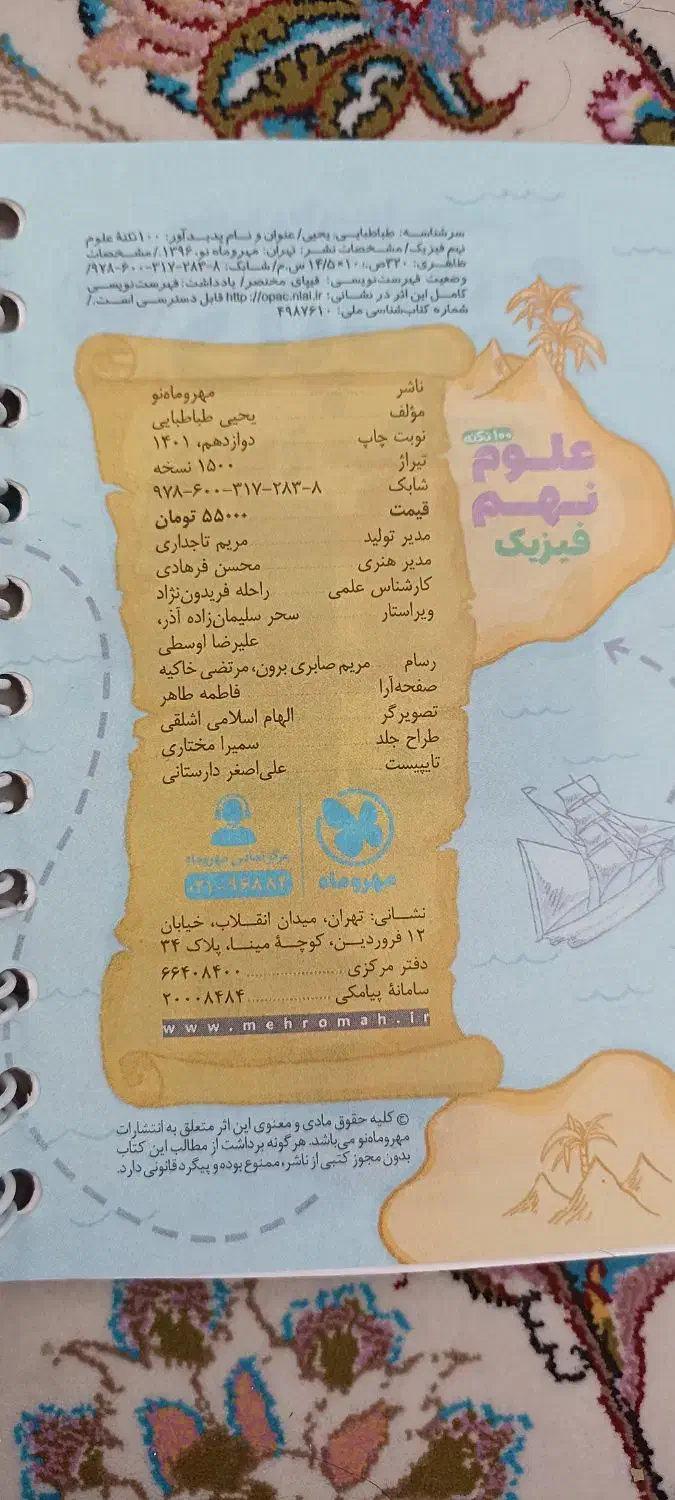 سرشناسه: طباطبایی، یحیی/ عنوان و نام پدیدآور: ۱۰۰ نکتهٔ علوم
نهم فیزیک/ مشخصات نشر: تهران: مهروماه نو، ۱۳۹۶./ مشخصات
ظاهری: ۳۲۰ص.؛ ۱۰×۱۴/۵ س.م/ شابک: ۸-۲۸۳-۳۱۷-۶۰۰-۹۷۸/
وضعیت فهرست‌نویسی: فیپای مختصر/ یادداشت: فهرست‌نویسی
کامل این اثر در نشانی: http://opac.nlai.ir قابل دسترسی است./
شماره کتاب‌شناسی ملی: ۴۹۸۷۶۱۰
۱۰۰ نکته
علوم
نهم
فیزیک
ناشر مهروماه‌نو
مؤلف یحیی طباطبایی
نوبت چاپ دوازدهم، ۱۴۰۱
تیراژ ۱۵۰۰ نسخه
شابک ۹۷۸-۶۰۰-۳۱۷-۲۸۳-۸
قیمت ۵۵۰۰۰ تومان
مدیر تولید مریم تاجداری
مدیر هنری محسن فرهادی
کارشناس علمی راحله فریدون‌نژاد
ویراستار سحر سلیمان‌زاده آذر،
علیرضا اوسطی
رسام مریم صابری برون، مرتضی خاکیه
صفحه‌آرا فاطمه طاهر
تصویرگر الهام اسلامی اشلقی
طراح جلد سمیرا مختاری
تایپیست علی‌اصغر دارستانی
مهروماه
مرکز تماس مهروماه
۰۲۱-۹۶۸۸۴
نشانی: تهران، میدان انقلاب، خیابان
۱۲ فروردین، کوچهٔ مینا، پلاک ۳۴
دفتر مرکزی ........ ۶۶۴۰۸۴۰۰
سامانهٔ پیامکی ........ ۲۰۰۰۸۴۸۴
www.mehromah.ir
© کلیه حقوق مادی و معنوی این اثر متعلق به انتشارات
مهروماه‌نو می‌باشد. هرگونه برداشت از مطالب این کتاب
بدون مجوز کتبی از ناشر، ممنوع بوده و پیگرد قانونی دارد.